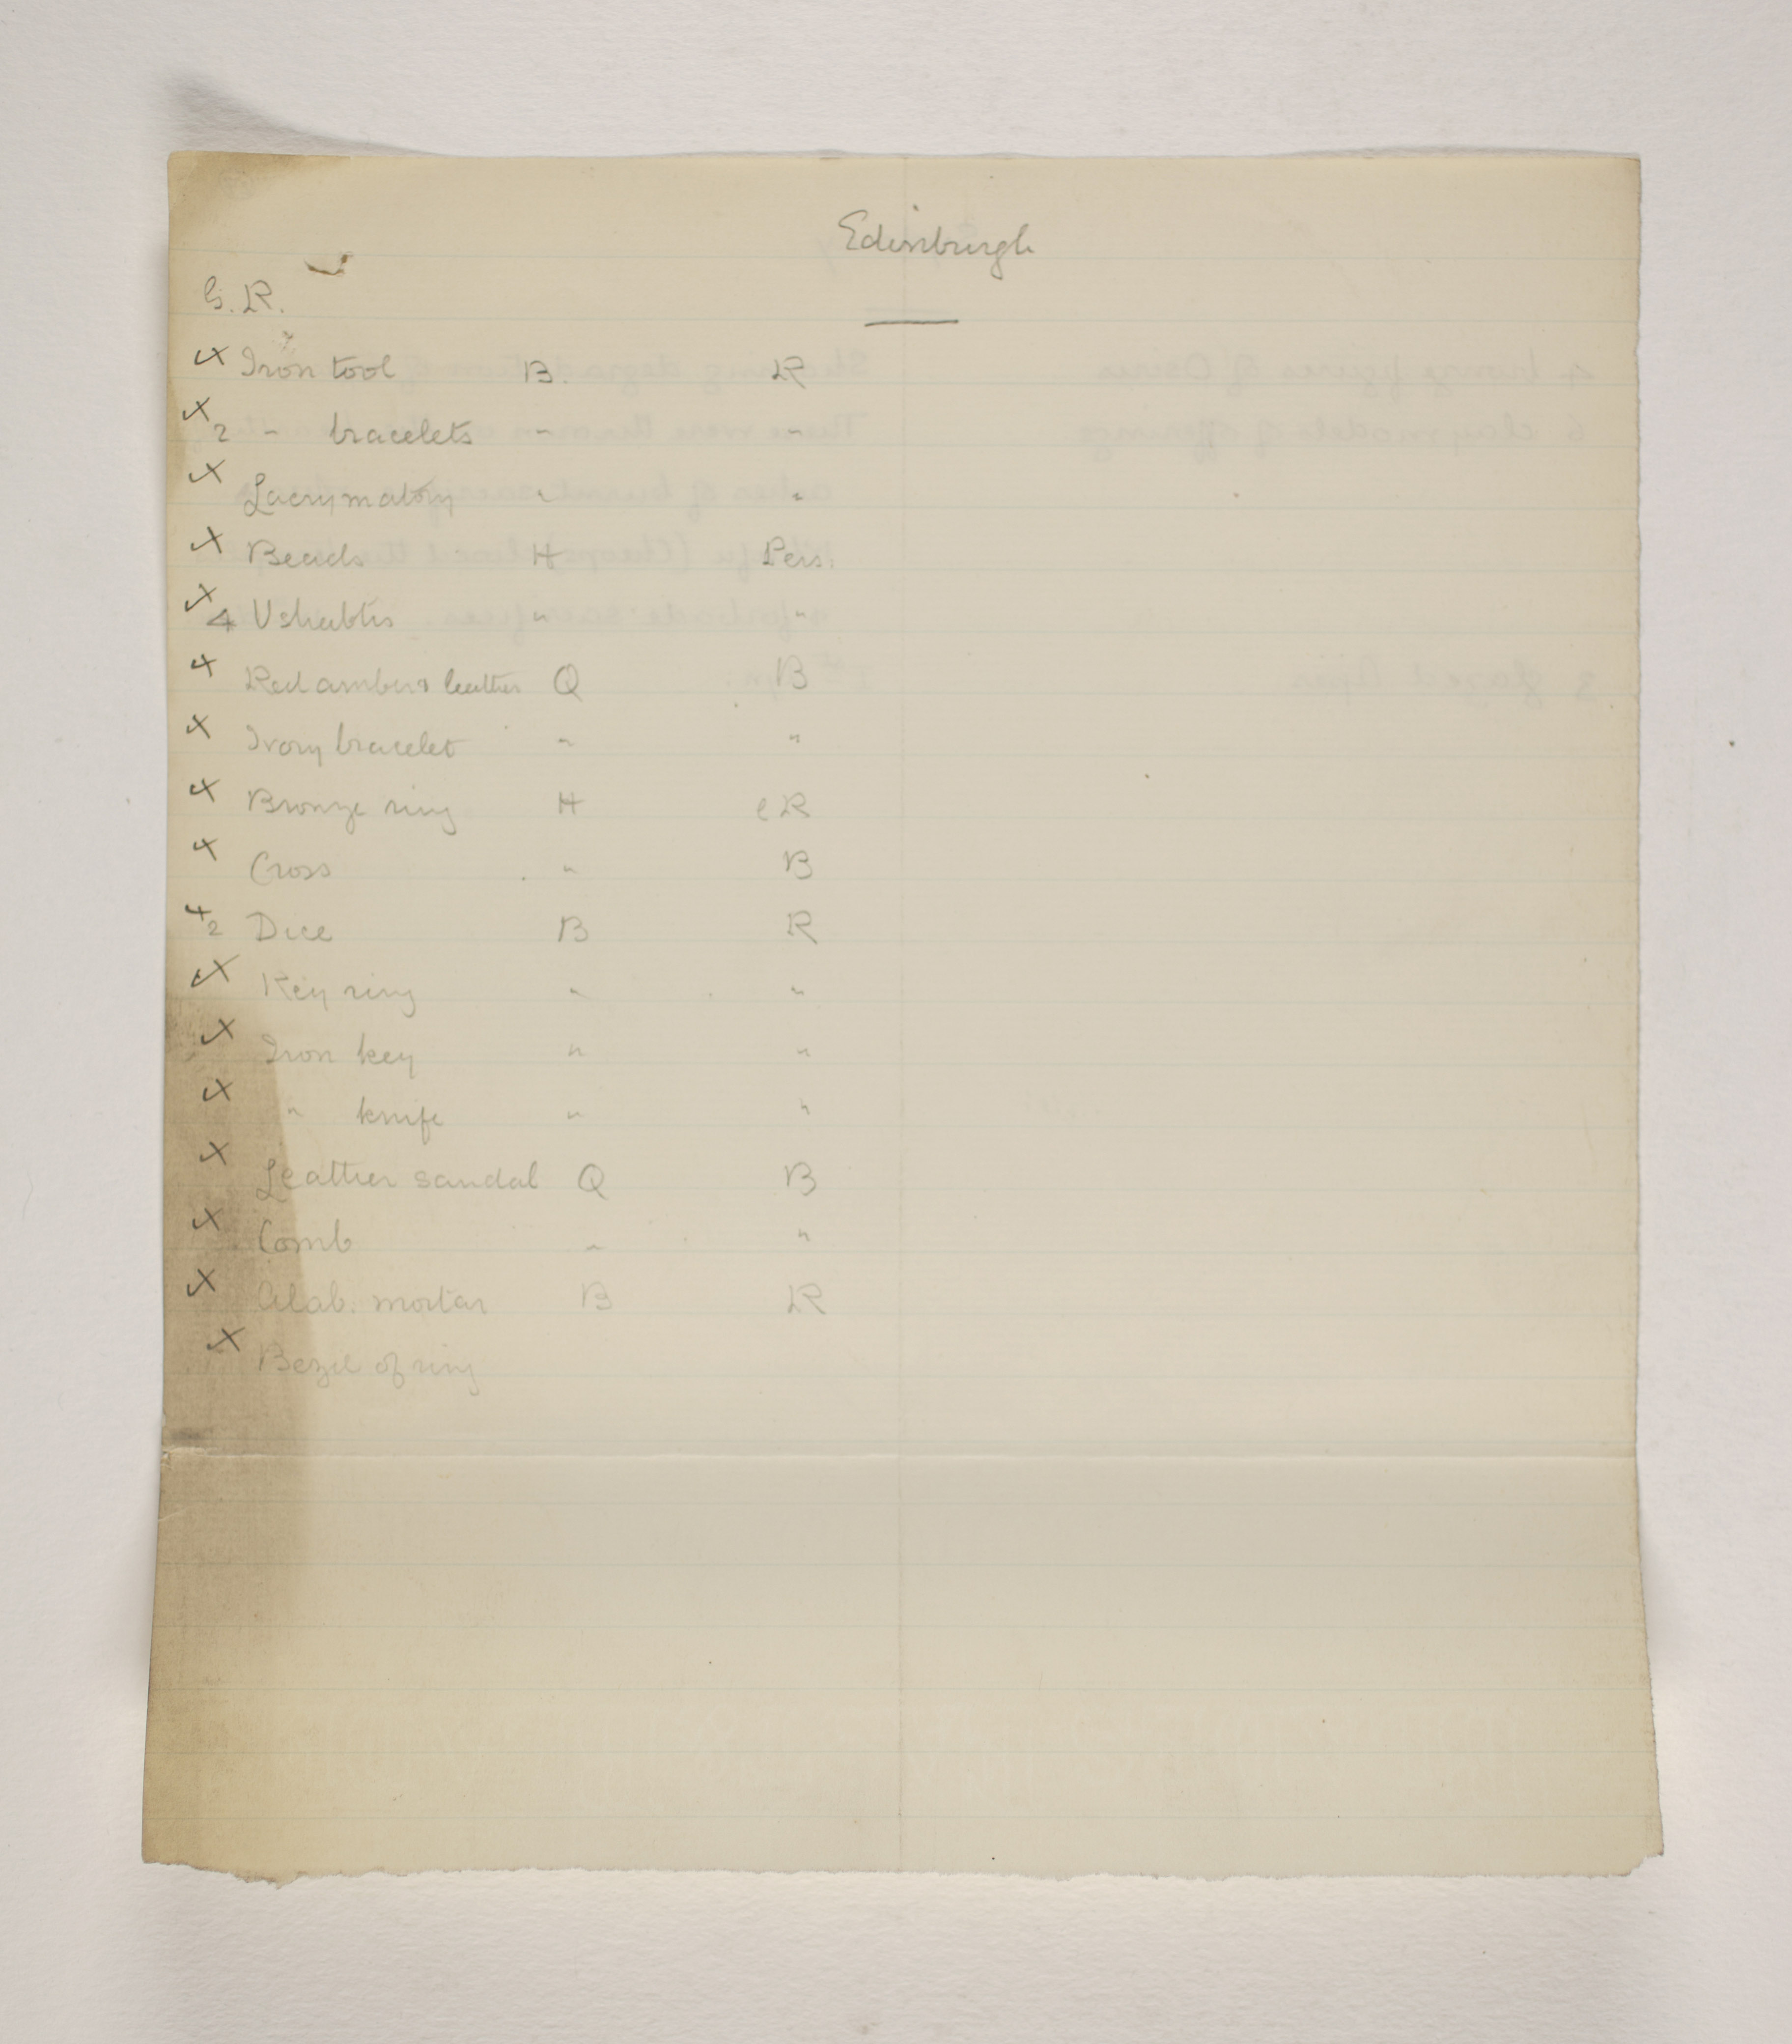 Edinburgh
G. R.
x Iron tool B. R
x 2 " bracelets " "
x Lacrymatory " "
x Beads H Pers.
x 4 Ushabtis " "
x Red amber & leather Q B
x Ivory bracelet " "
x Bronze ring H e R
x Cross " B
x 2 Dice B R
x Key ring " "
x Iron key " "
x " knife " "
x Leather sandal Q B
x Comb " "
x Alab. mortar B R
x Bezel of ring